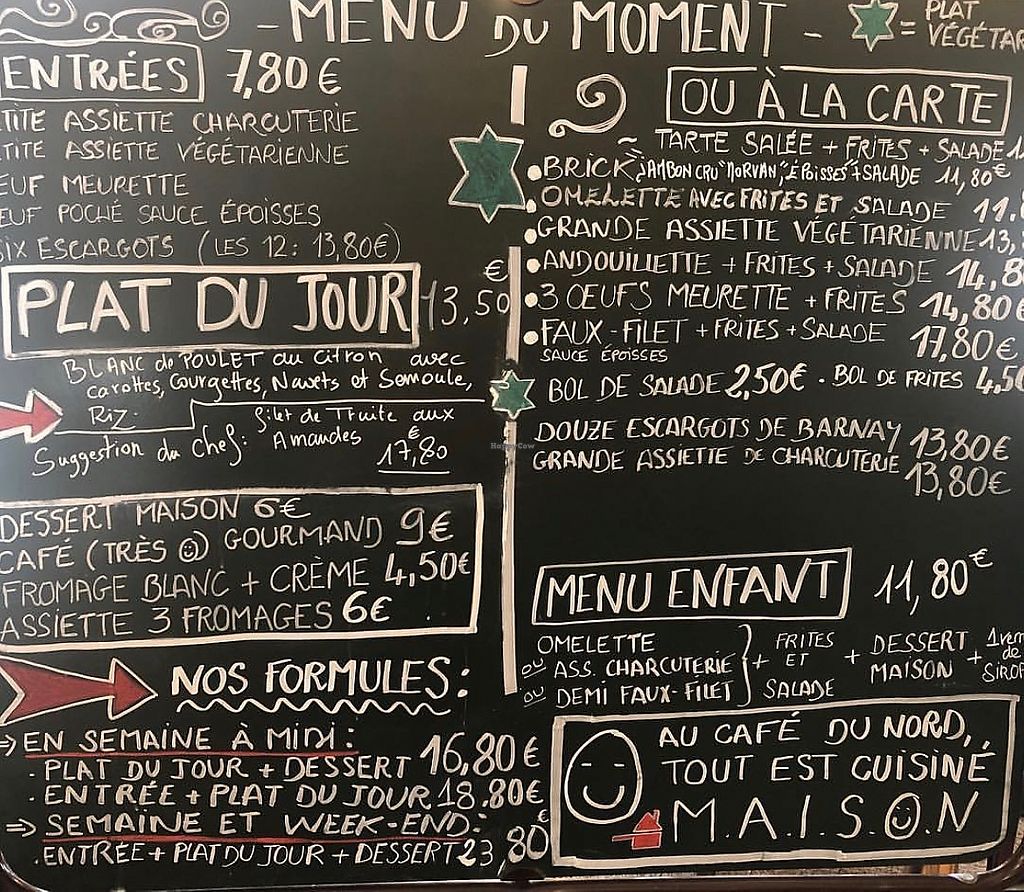 - MENU DU MOMENT -
= PLAT
VÉGÉTAR
ENTRÉES 7,80 €
TITE ASSIETTE CHARCUTERIE
TITE ASSIETTE VÉGÉTARIENNE
EUF MEURETTE
EUF POCHÉ SAUCE ÉPOISSES
SIX ESCARGOTS (LES 12: 13,80€)
PLAT DU JOUR 13,50 €
BLANC de POULET au Citron avec
Carottes, Courgettes, Navets et Semoule,
Riz.
Suggestion du Chef: filet de Truite aux
Amandes
17,80
DESSERT MAISON 6€
CAFÉ (TRÈS ☺) GOURMAND 9€
FROMAGE BLANC + CRÈME 4,50€
ASSIETTE 3 FROMAGES 6€
NOS FORMULES:
=> EN SEMAINE À MIDI:
. PLAT DU JOUR + DESSERT 16,80€
. ENTRÉE + PLAT DU JOUR 18.80€
=> SEMAINE ET WEEK-END:
. ENTRÉE + PLAT DU JOUR + DESSERT 23,80€
OU À LA CARTE
TARTE SALÉE + FRITES + SALADE
• BRICK "JAMBON CRU "MORVAN", ÉPOISSES" + SALADE 11,80€
• OMELETTE AVEC FRITES ET SALADE 11.
• GRANDE ASSIETTE VÉGÉTARIENNE 13,
• ANDOUILLETTE + FRITES + SALADE 14,8
• 3 OEUFS MEURETTE + FRITES 14,80€
• FAUX-FILET + FRITES + SALADE 17,80€
SAUCE ÉPOISSES
BOL DE SALADE 2,50€ . BOL DE FRITES 4,50
DOUZE ESCARGOTS DE BARNAY 13,80€
GRANDE ASSIETTE DE CHARCUTERIE
13,80€
MENU ENFANT 11,80€
OMELETTE
OU ASS. CHARCUTERIE
OU DEMI FAUX-FILET
+ FRITES
ET
SALADE
+ DESSERT
MAISON
+ 1 verre
de
SIROP
AU CAFÉ DU NORD,
TOUT EST CUISINÉ
M.A.I.S.O.N
HappyCow